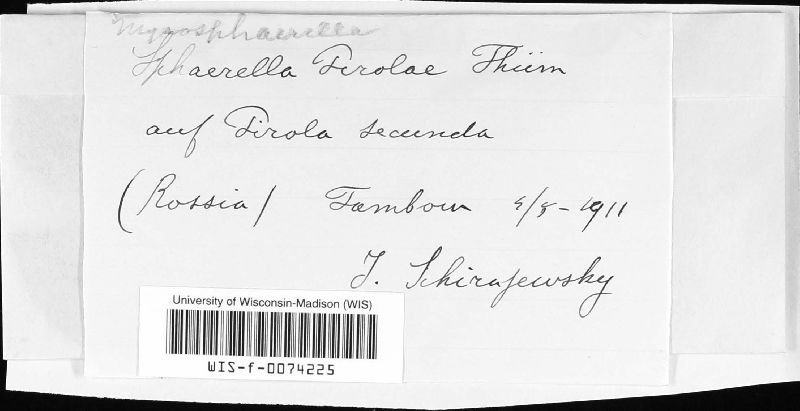 Mycosphaerella
Sphaerella Pirolae Thüm
auf Pirola secunda
(Rossia) Tambow 5/8-1911
J. Schirajewsky
University of Wisconsin-Madison (WIS)
WIS-f-0074225